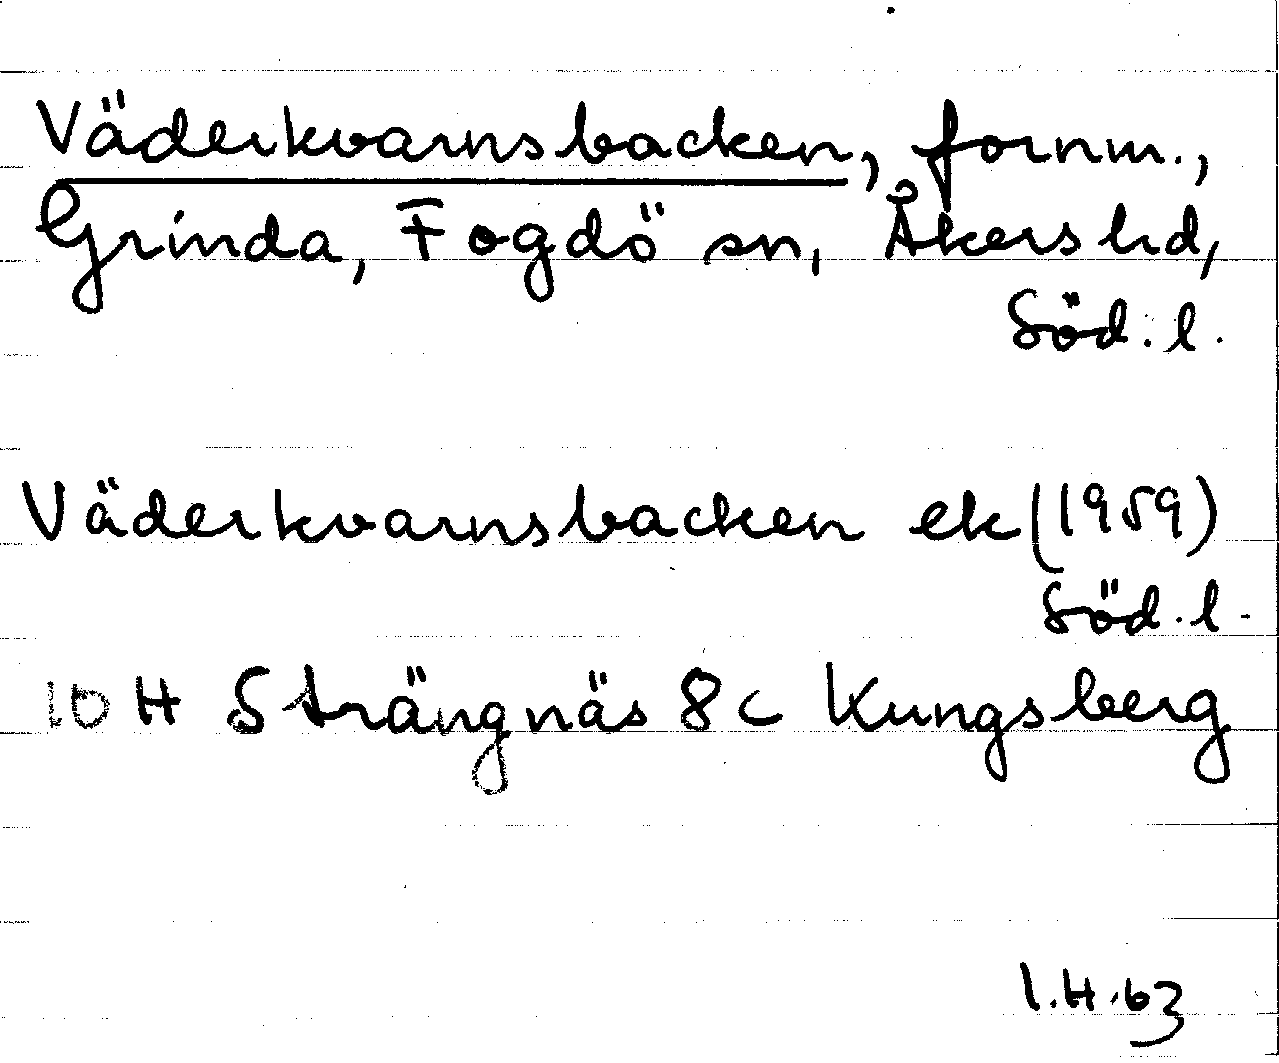 Väderkvarnsbacken, fornm.,
Grinda, Fogdö sn, Åkers hd,
Söd. l.
Väderkvarnsbacken ek (1959)
Söd. l.
10 H Strängnäs 8 c Kungsberg
I.H. 63